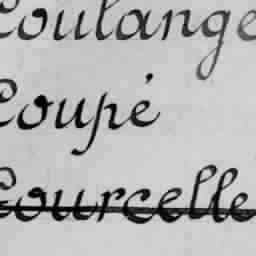 Coulange
Coupé
Courcelle